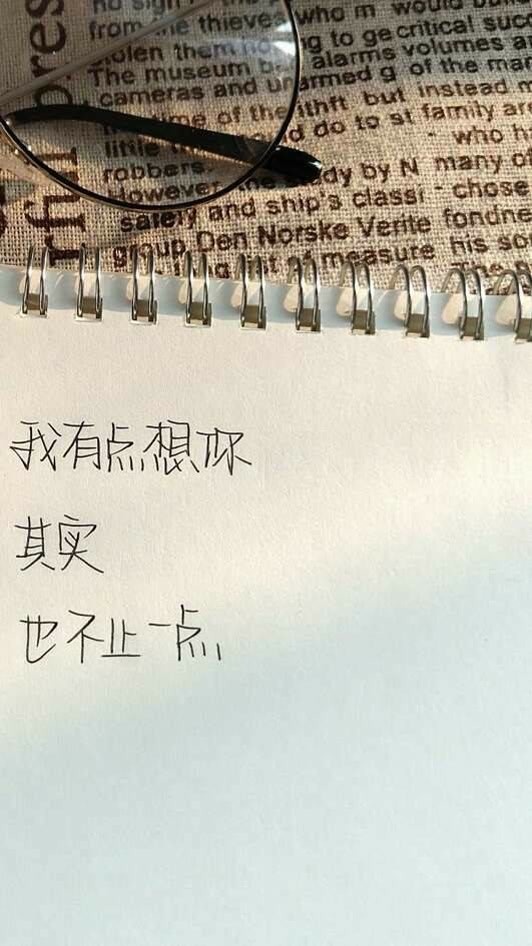 no sign
from the thieves who m would
stolen them ng to ge critical suc
The museum alarms volumes a
cameras and unarmed g of the mar
time of the ithft but instead
little nd do to st family ar
robbers. - who h
However, the dy by N many of
safely and ship's classi - chose
group Den Norske Verite fondne
measure his so
我有点想你
其实
也不止一点